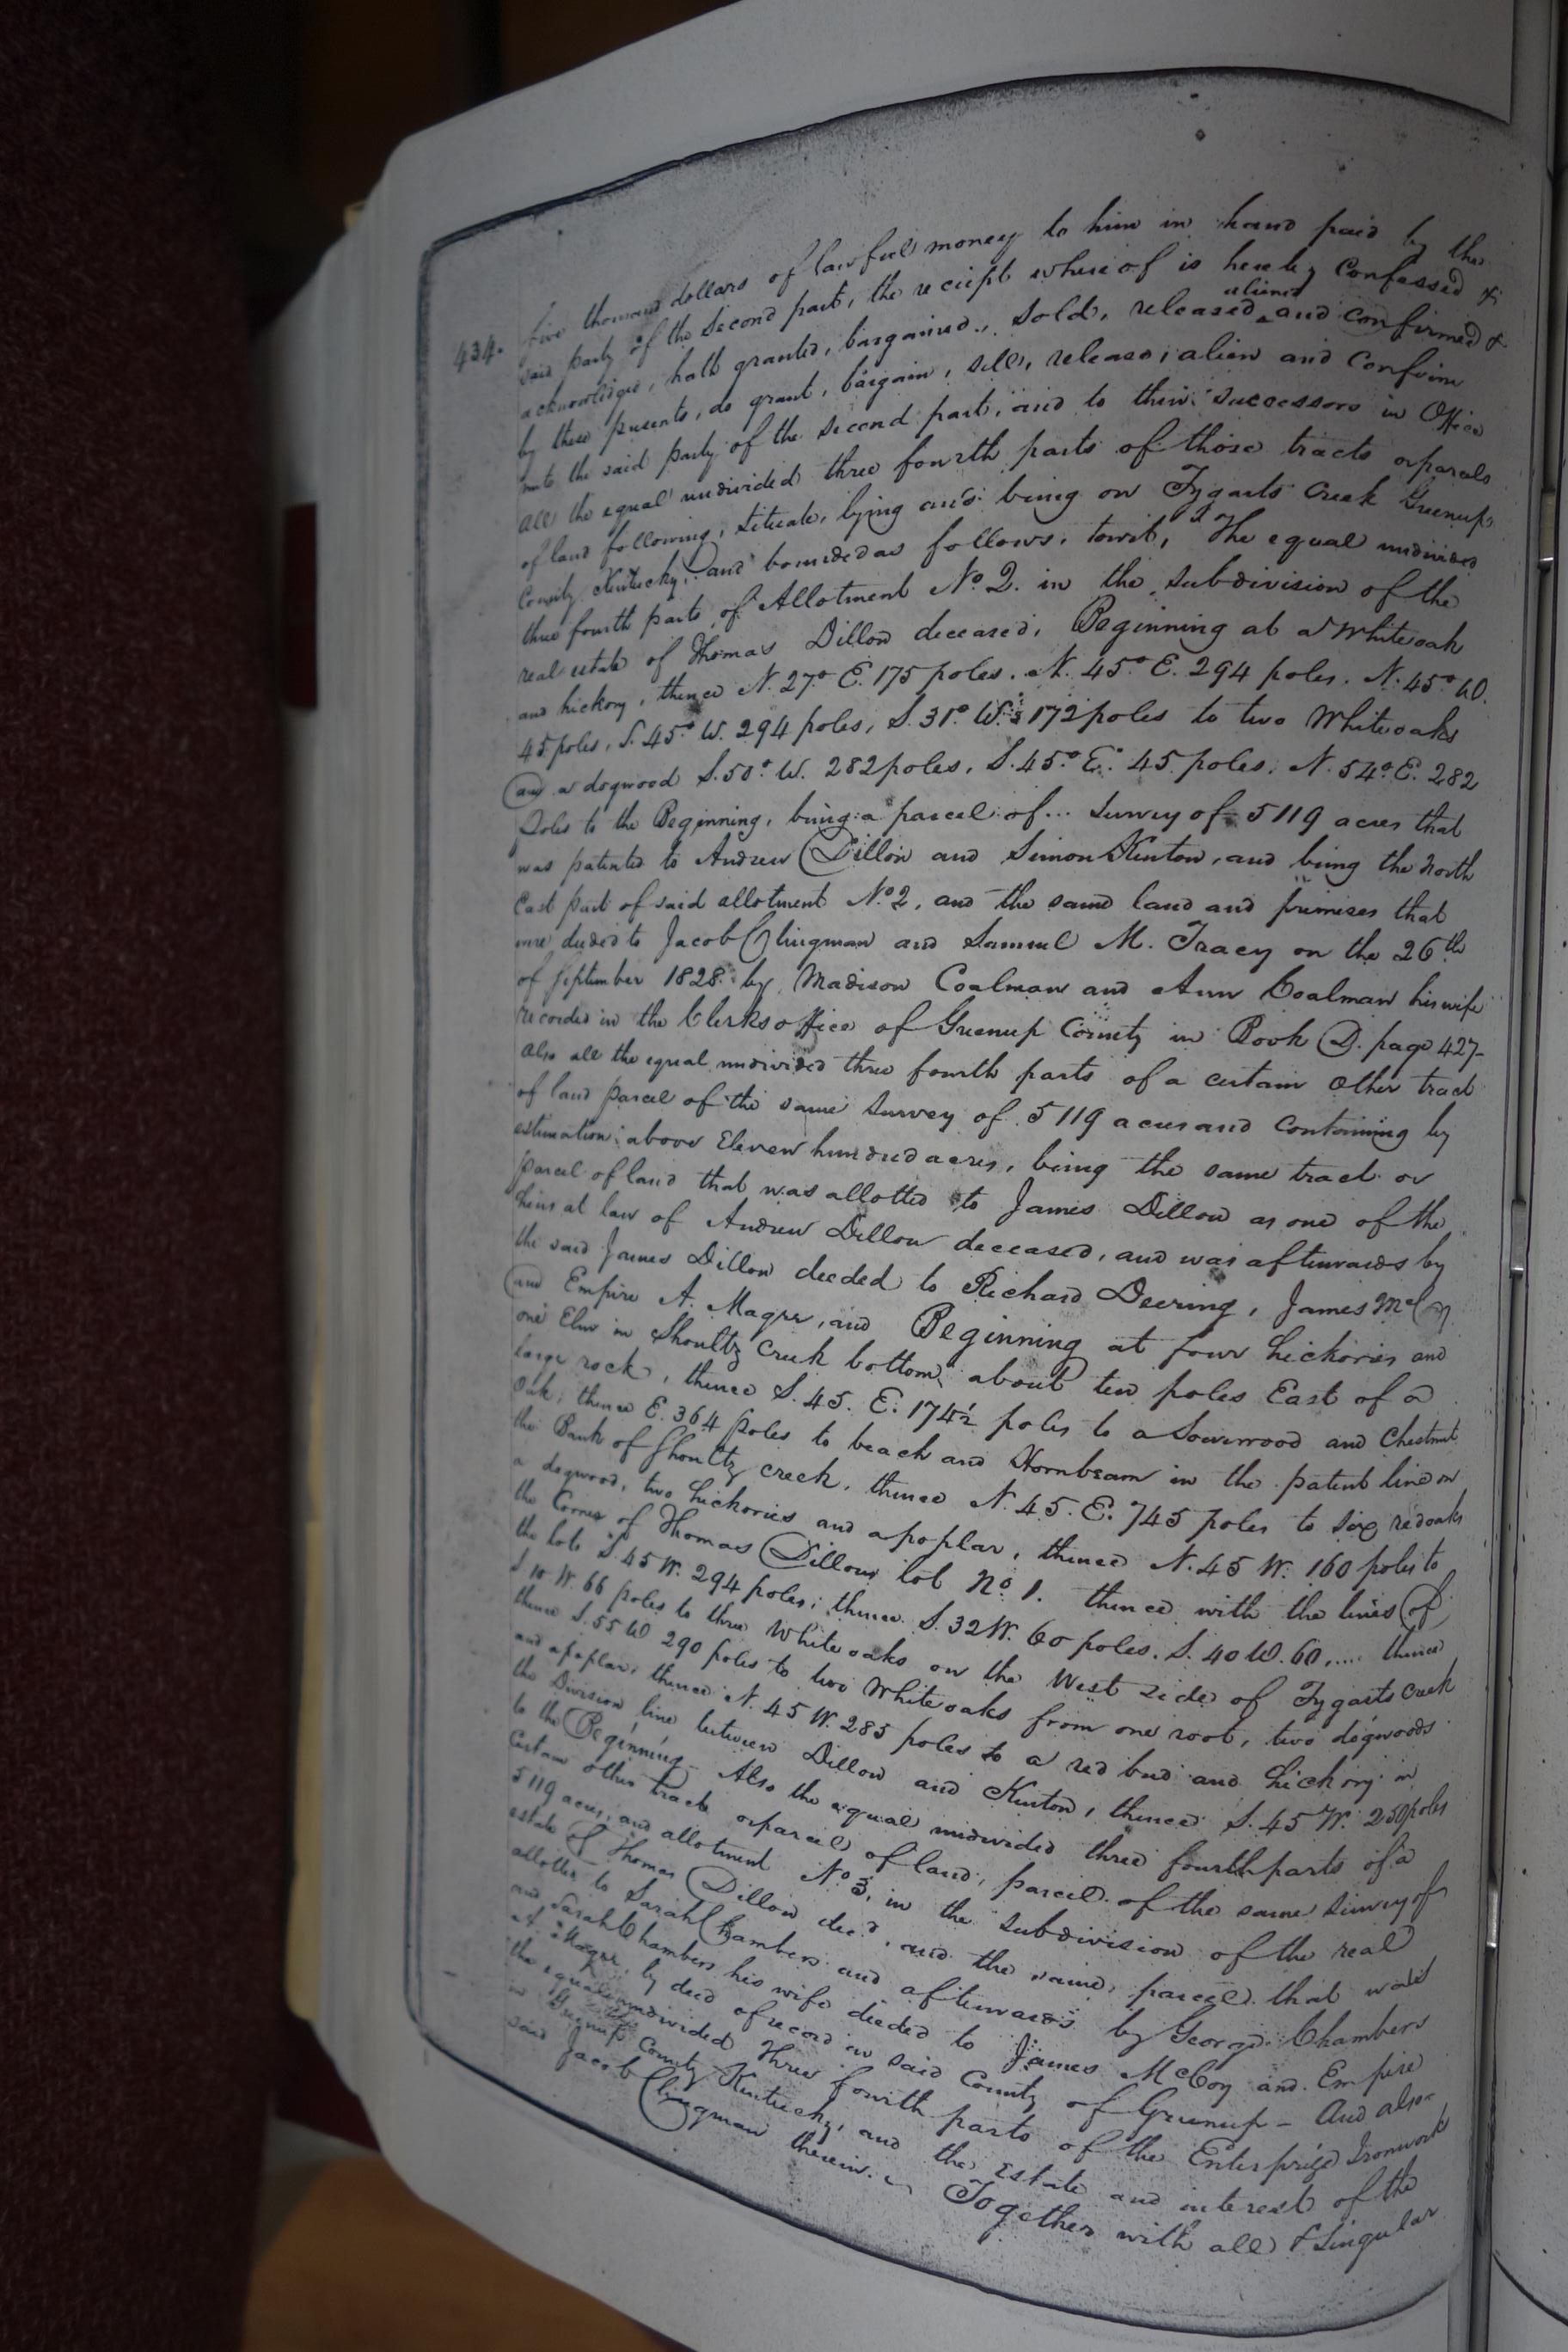 434.
five thousand dollars of lawful money to him in hand paid by the
said party of the Second part, the reciept where of is hereby Confessed &
acknowledged, hath granted, bargained, sold, released, aliened and confirmed &
by these presents, do grant, bargain, sell, release, alien and Confirm
unto the said party of the second part, and to their successors in Office
all the equal undivided three fourth parts of those tracts or parcels
of land following, situate, lying and being on Tygarts Creek Greenup
County Kentucky, and bounded as follows, towit, The equal undivided
three fourth parts of Allotment No. 2. in the subdivision of the
real estate of Thomas Dillon deceased, Beginning at a White oak
and hickory, thence N. 27° E. 175 poles. N. 45° E. 294 poles. N. 45° W.
45 poles, S. 45° W. 294 poles, S. 31° W. 172 poles to two White oaks
and a dogwood S. 50° W. 282 poles, S. 45° E. 45 poles, N. 54° E. 282
Poles to the Beginning, being a parcel of ... Survey of 5119 acres that
was patented to Andrew Dillon and Simon Kenton, and being the North
East part of said allotment No. 2, and the same land and premises that
were deeded to Jacob Clingman and Samuel M. Tracy on the 26th
of September 1828 by Madison Coalman and Ann Coalman his wife
recorded in the Clerks office of Greenup County in Book D. page 427-
Also all the equal undivided three fourth parts of a certain other tract
of land parcel of the same Survey of 5119 acres and Containing by
estimation above Eleven hundred acres, being the same tract or
parcel of land that was allotted to James Dillon as one of the
heirs at law of Andrew Dillon deceased, and was afterwards by
the said James Dillon deeded to Richard Deering, James McCoy
and Empire A. Magee, and Beginning at four hickories and
one Elm in Shoultz Creek bottom, about ten poles East of a
large rock, thence S. 45. E. 174½ poles to a Sourwood and Chestnut
Oak, thence E. 364 poles to beach and Hornbeam in the patent line on
the Bank of Shoultz creek, thence N. 45. E. 745 poles to six redoaks
a dogwood, two hickories and a poplar, thence N. 45 W. 160 poles to
the Corner of Thomas Dillons lot No. 1. thence with the lines of
the lots S. 45 W. 294 poles; thence S. 32 W. 60 poles. S. 40 W. 60 .... thence
S 10 W. 66 poles to three White oaks on the West side of Tygarts Creek
thence S. 55 W 290 poles to two White oaks from one root, two dogwoods
and a poplar, thence N. 45 W. 285 poles to a red bud and hickory in
the Division line between Dillon and Kenton, thence S. 45 W. 250 poles
to the Beginning - Also the equal undivided three fourth parts of a
Certain other tract or parcel of land, parcel of the same survey of
5119 acres, and allotment No. 3, in the subdivision of the real
estate of Thomas Dillon decd, and the same parcel that was
allotted to Sarah Chambers and afterwards by George Chambers
and Sarah Chambers his wife deeded to James McCoy and Empire
A. Magee, by deed of record in said County of Greenup - And also
the equal undivided three fourth parts of the Enterprize Ironwork
in Greenup County Kentucky, and the estate and interest of the
said Jacob Clingman therein. Together with all & Singular